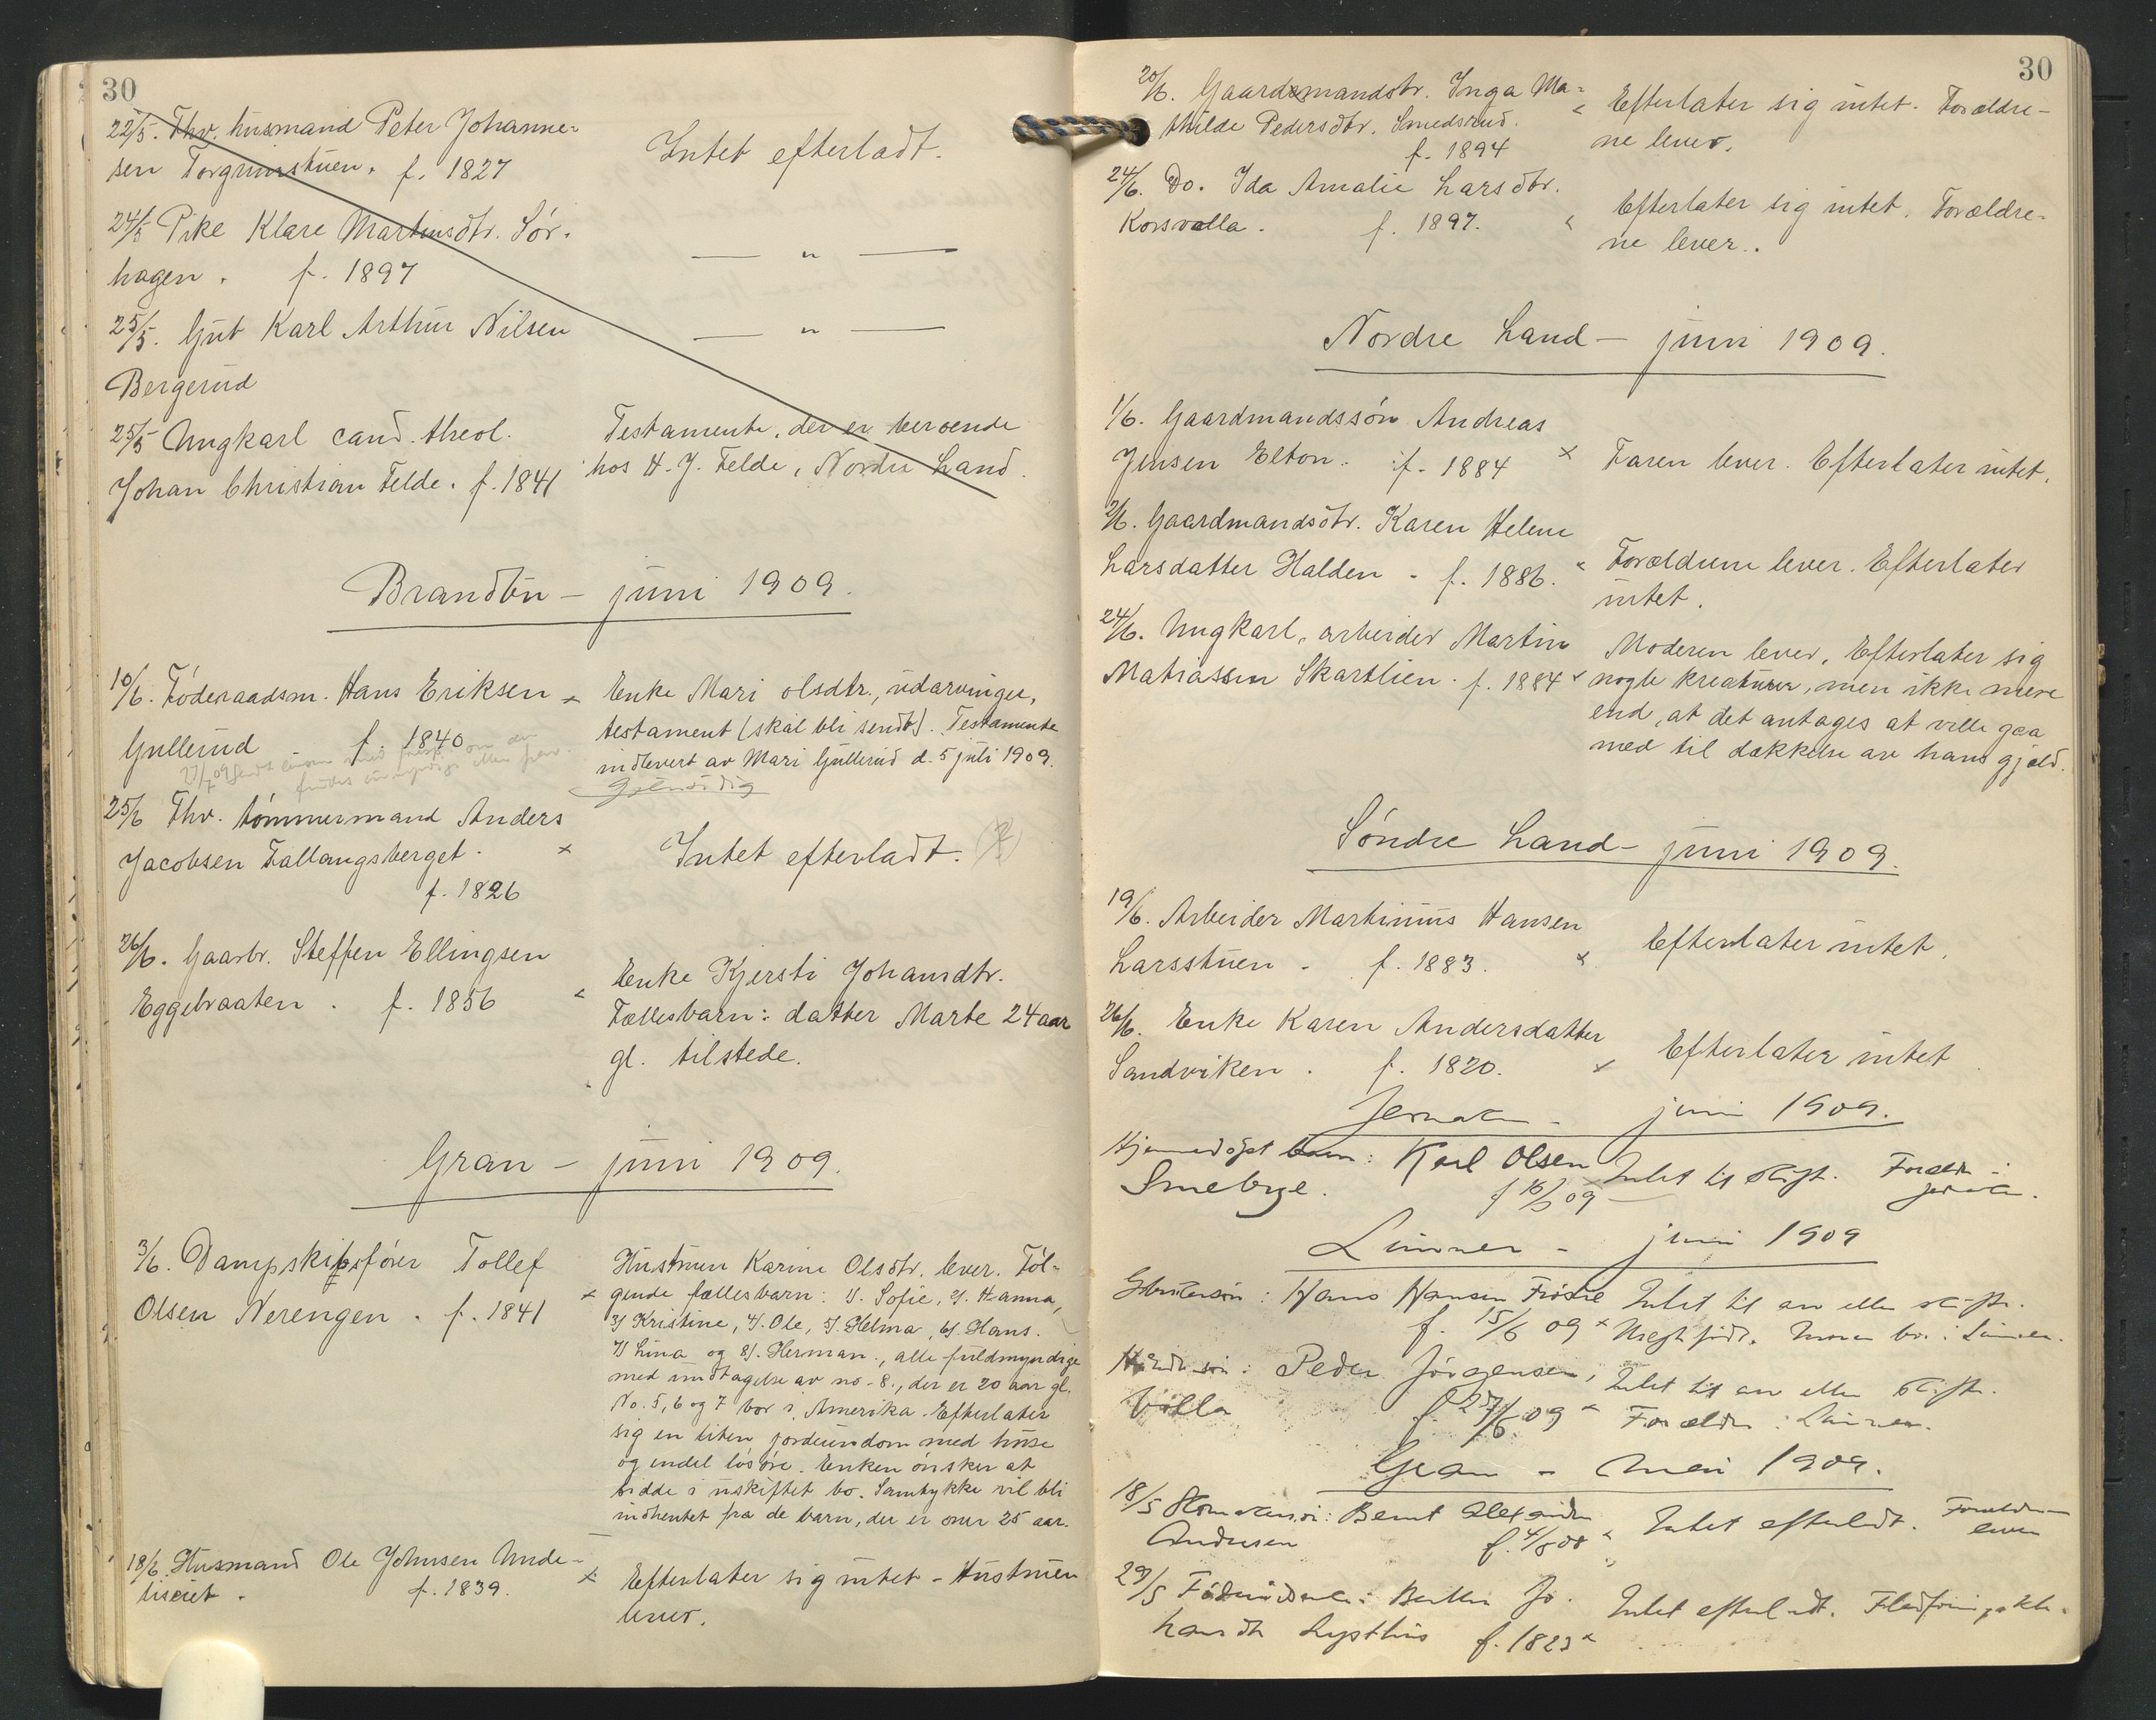 30
22/5. Fhv. husmand Peter Johanne-
sen Torgunstuen. f. 1827
Intet efterladt.
24/5 Pike Klare Martinsdtr. Sør-
hagen. f. 1897
— „ —
25/5. Gut Karl Arthur Nilsen
Bergerud
— „ —
25/5 Ungkarl cand. theol.
Johan Christian Felde. f. 1841
Testamente, der er beroende
hos H. J. Felde, Nordre Land.
Brandbu — juni 1909.
10/6. Føderaadsm. Hans Eriksen
Gullerud f. 1840
Enke Mari olsdtr., utarvinger,
testament (skal bli sendt). Testamente
indlevert av Mari Gullerud d. 5 juli 1909.
Gjensidig
25/6 Fhv. tømmermand Anders
Jacobsen Fallangsberget. ×
f. 1826
Intet efterladt.
26/6. Gaarbr. Steffen Ellingsen
Eggebraaten. f. 1856
Enke Kjersti Johansdtr.
Fællesbarn: datter Marte 24 aar
gl. tilstede.
Gran — juni 1909.
3/6. Dampskibsfører Tollef
Olsen Nerengen. f. 1841
Hustruen Karine Olsdtr. lever. Føl-
× gende fællesbarn: 1). Sofie, 2). Hanna,
3) Kristine, 4). Ole, 5). Helma, 6). Hans.
7) Lina og 8). Herman., alle fuldmyndige
med undtagelse av no. 8., der er 20 aar gl.
No. 5, 6 og 7 bor i Amerika. Efterlater
sig en liten jordeiendom med huse
og endel løsøre. Enken ønsker at
sidde i uskiftet bo. Samtykke vil bli
indhentet fra de barn, der er over 25 aar.
18/6. Husmand Ole Johnsen Unde-
liseiet. f. 1839.
× Efterlater sig intet - Hustruen
lever.
30
20/6. Gaardmandsdtr. Inga Ma-
thilde Pedersdtr. Smedsrud.
f. 1894
Efterlater sig intet. Forældre-
ne lever.
24/6. Do. Ida Amalie Larsdtr.
Korsvolla. f. 1897.
Efterlater sig intet. Forældre-
ne lever.
Nordre Land — juni 1909.
1/6. Gaardmandssøn Andreas
Jensen Elton. f. 1884
× Faren lever. Efterlater intet.
2/6. Gaardmandsdtr. Karen Helene
Larsdatter Halden - f. 1886.
Forældrene lever. Efterlater
intet.
24/6. Ungkarl, arbeider Martin
Matiassen Skartlien. f. 1884
Moderen lever, Efterlater sig
nogle kreaturer, men ikke mere
end, at det antages at ville gaa
med til dækkelse av hans gjæld.
Søndre Land — juni 1909.
19/6. Arbeider Martinius Hansen
Larsstuen - f. 1883.
Efterlater intet.
26/6. Enke Karen Andersdatter
Sandviken. f. 1820. ×
Efterlater intet
Jevnaker — juni 1909.
Hjemmedøpt barn: Karl Olsen
Smebye.
Intet til skifte. Forældre i
Jevnaker.
Lunner — juni 1909
Hans Hansen
f. 15/6 09 ×
Intet til arv eller skifte.
Uegte født. Moren bor i Lunner.
Peder Jørgensen,
Volla
Intet til arv eller skifte.
Forældre i Lunner.
Gran — Mai 1909.
18/5 Bernt Alexander
Andersen
Intet efterladt. Forældrene
lever
29/5 Berthe Jo-
hansdtr f. 1823 ×
Intet efterladt.